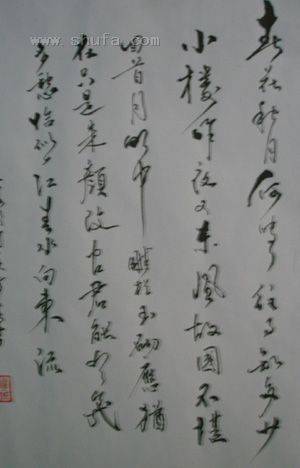 www.shufa.com
春花秋月何时了往事知多少
小樓昨夜又東風故國不堪
回首月明中雕栏玉砌應猶
在只是朱顏改问君能有几
多愁恰似一江春水向東流